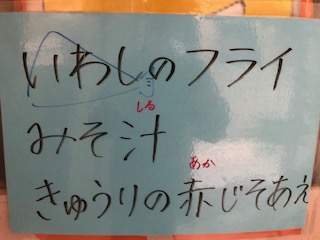 いわしのフライ
しる
みそ汁
あか
きゅうりの赤じそあえ